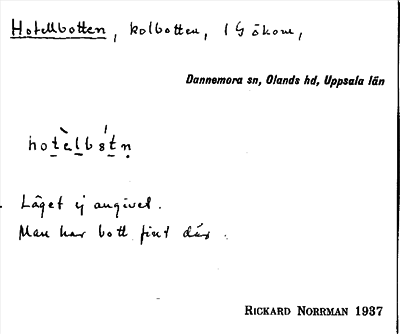 Hotellbotten, kolbotten, 1 G ökom,
Dannemora sn, Olands hd, Uppsala län
Läget ej angivet.
Man har bott fint där.
RICKARD NORRMAN 1937